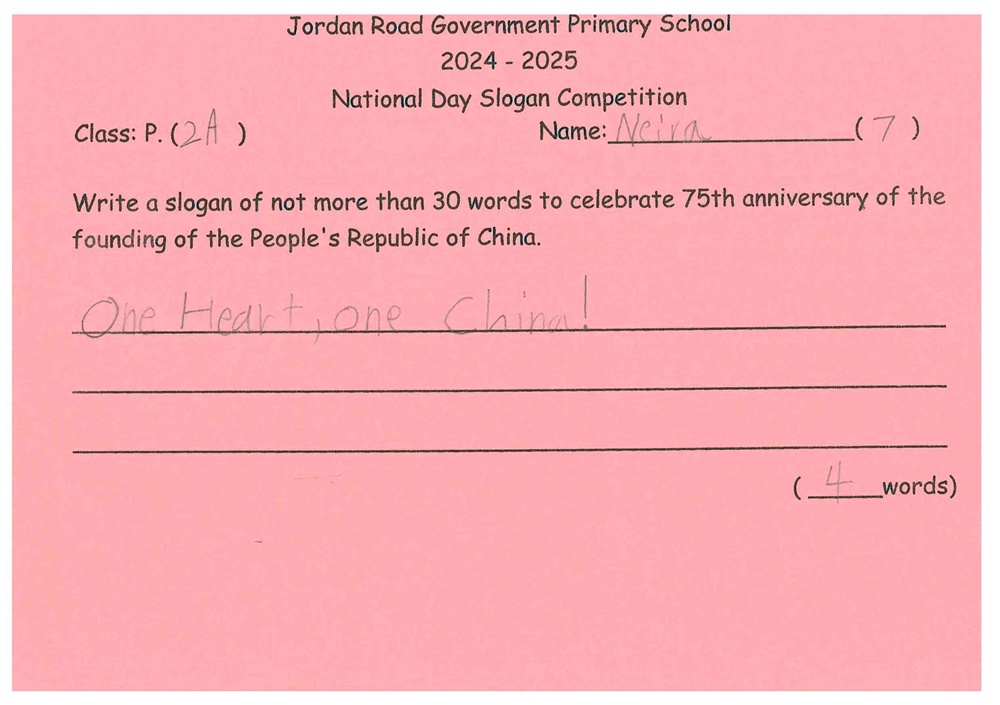 Jordan Road Government Primary School
2024 - 2025
National Day Slogan Competition
Class: P. (2A) Name: Neira (7)
Write a slogan of not more than 30 words to celebrate 75th anniversary of the
founding of the People's Republic of China.
One Heart, one China!
(4 words)